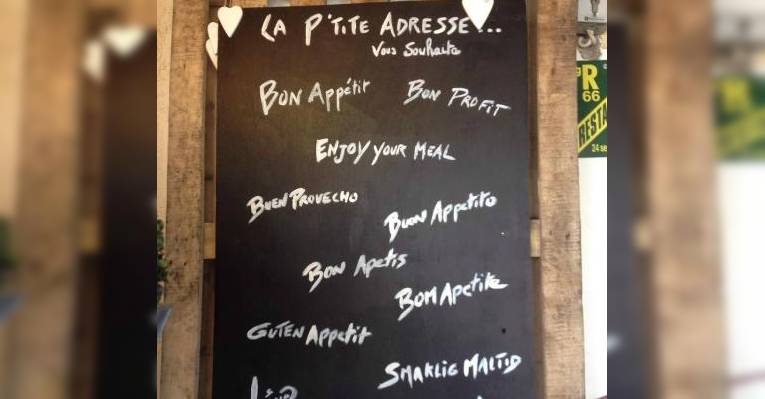 LA P'TITE ADRESSE!...
Vous Souhaite
BON Appétit
BON PROFIT
ENJOY YOUR MEAL
BUEN PROVECHO
BUON AppETITO
BON APETIS
BOM APETITE
GUTEN AppETIT
SMAKLIG MALTID
R
66
RESTA
24 se